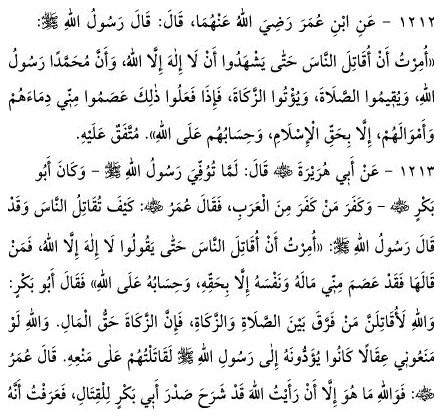 ١٢١٢ - عَنِ ابْنِ عُمَرَ رَضِيَ اللهُ عَنْهُمَا، قَالَ: قَالَ رَسُولُ اللهِ ﷺ:
«أُمِرْتُ أَنْ أُقَاتِلَ النَّاسَ حَتَّى يَشْهَدُوا أَنْ لَا إِلٰهَ إِلَّا اللهُ، وَأَنَّ مُحَمَّدًا رَسُولُ
اللهِ، وَيُقِيمُوا الصَّلَاةَ، وَيُؤْتُوا الزَّكَاةَ، فَإِذَا فَعَلُوا ذٰلِكَ عَصَمُوا مِنِّي دِمَاءَهُمْ
وَأَمْوَالَهُمْ، إِلَّا بِحَقِّ الْإِسْلَامِ، وَحِسَابُهُم عَلَى اللهِ». مُتَّفَقٌ عَلَيْهِ.
١٢١٣ - عَنْ أَبِي هُرَيْرَةَ ﷺ قَالَ: لَمَّا تُوُفِّيَ رَسُولُ اللهِ ﷺ - وَكَانَ أَبُو
بَكْرٍ ﷺ - وَكَفَرَ مَنْ كَفَرَ مِنَ الْعَرَبِ، فَقَالَ عُمَرُ ﷺ: كَيْفَ تُقَاتِلُ النَّاسَ وَقَدْ
قَالَ رَسُولُ اللهِ ﷺ: «أُمِرْتُ أَنْ أُقَاتِلَ النَّاسَ حَتَّى يَقُولُوا لَا إِلٰهَ إِلَّا اللهُ، فَمَنْ
قَالَهَا فَقَدْ عَصَمَ مِنِّي مَالَهُ وَنَفْسَهُ إِلَّا بِحَقِّهِ، وَحِسَابُهُ عَلَى اللهِ» فَقَالَ أَبُو بَكْرٍ:
وَاللهِ لَأُقَاتِلَنَّ مَنْ فَرَّقَ بَيْنَ الصَّلَاةِ وَالزَّكَاةِ، فَإِنَّ الزَّكَاةَ حَقُّ الْمَالِ. وَاللهِ لَوْ
مَنَعُونِي عِقَالًا كَانُوا يُؤَدُّونَهُ إِلَى رَسُولِ اللهِ ﷺ لَقَاتَلْتُهُمْ عَلَى مَنْعِهِ. قَالَ عُمَرُ
ﷺ: فَوَاللهِ مَا هُوَ إِلَّا أَنْ رَأَيْتُ اللهَ قَدْ شَرَحَ صَدْرَ أَبِي بَكْرٍ لِلْقِتَالِ، فَعَرَفْتُ أَنَّهُ